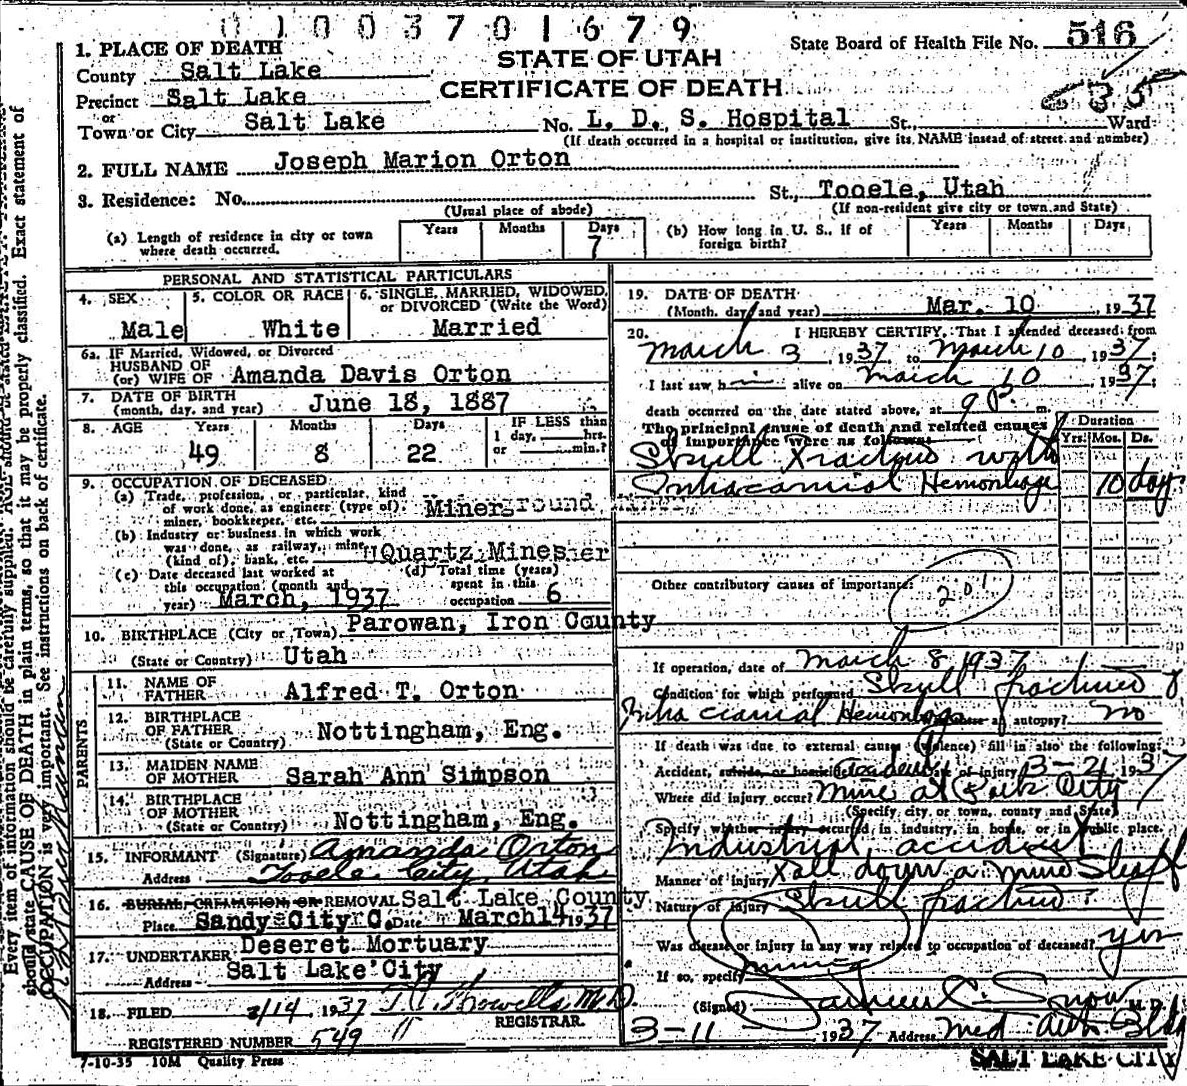 01003701679
1. PLACE OF DEATH
STATE OF UTAH
State Board of Health File No. 516
County Salt Lake
CERTIFICATE OF DEATH
35
Precinct Salt Lake
or
Town or City Salt Lake No. L. D. S. Hospital St., Ward
(If death occurred in a hospital or institution, give its NAME insead of street and number)
2. FULL NAME Joseph Marion Orton
3. Residence: No. St., Tooele, Utah
(Usual place of abode) (If non-resident give city or town and State)
(a) Length of residence in city or town where death occurred. Years Months Days 7
(b) How long in U. S., if of foreign birth? Years Months Days
PERSONAL AND STATISTICAL PARTICULARS
4. SEX 5. COLOR OR RACE 6. SINGLE, MARRIED, WIDOWED, or DIVORCED (Write the Word)
Male White Married
6a. IF Married, Widowed, or Divorced
HUSBAND OF
(or) WIFE OF Amanda Davis Orton
7. DATE OF BIRTH
(month, day, and year) June 18, 1887
8. AGE Years Months Days IF LESS than
1 day, hrs.
or min.?
49 8 22
9. OCCUPATION OF DECEASED
(a) Trade, profession, or particular, kind
of work done, as engineer (type of),
miner, bookkeeper, etc. Miner
(b) Industry or business in which work
was done, as railway, mine
(kind of), bank, etc. Quartz Mines
(c) Date deceased last worked at
this occupation (month and
year) March, 1937
(d) Total time (years)
spent in this
occupation 6
10. BIRTHPLACE (City or Town) Parowan, Iron County
(State or Country) Utah
PARENTS
11. NAME OF
FATHER Alfred T. Orton
12. BIRTHPLACE
OF FATHER Nottingham, Eng.
(State or Country)
13. MAIDEN NAME
OF MOTHER Sarah Ann Simpson
14. BIRTHPLACE
OF MOTHER
(State or Country) Nottingham, Eng.
15. INFORMANT (Signature) Amanda Orton
Address Tooele City, Utah
16. BURIAL, CREMATION, OR REMOVAL Salt Lake County
Place Sandy City C. Date March 14 1937
17. UNDERTAKER Deseret Mortuary
Address Salt Lake City
18. FILED 3/14, 1937 M.D.
REGISTRAR.
REGISTERED NUMBER 549
7-10-35 10M Quality Press
19. DATE OF DEATH
(Month, day and year) Mar. 10, 1937
20. I HEREBY CERTIFY, That I attended deceased from
March 3, 1937, to March 10, 1937;
I last saw him alive on March 10, 1937,
death occurred on the date stated above, at 9 P. m.
The principal cause of death and related causes
of importance were as follows:
Duration
Yrs. Mos. Ds.
Skull Fracture with
Intracranial Hemorrhage 10 days
Other contributory causes of importance:
201
If operation, date of March 8 1937
Condition for which performed Skull fractured &
Intra cranial Hemorrhage Was there an autopsy? no
If death was due to external cause (violence) fill in also the following:
Accident, suicide, or homicide Accident Date of injury 3-2, 1937
Where did injury occur? Mine at Park City
(Specify city or town, county and State)
Specify whether injury occurred in industry, in home, or in public place.
Industrial accident
Manner of injury Fall down a mine Shaft
Nature of injury Skull fractured
Was disease or injury in any way related to occupation of deceased? yes
If so, specify mining
(Signed) C. Snow M.D.
3-11 1937 Address Med Arts Bldg
SALT LAKE CITY
Every item of information should be carefully supplied. AGE should be stated EXACTLY.
should state CAUSE OF DEATH in plain terms, so that it may be properly classified. Exact statement of
OCCUPATION is very important. See instructions on back of certificate.